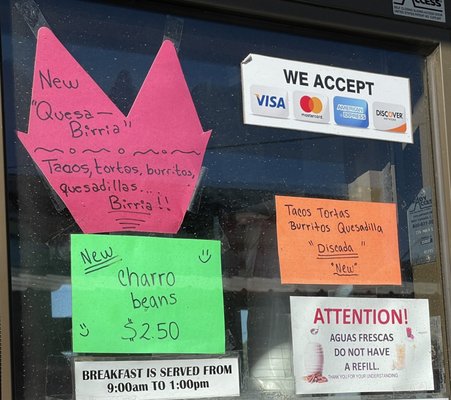 New
"Quesa-
Birria"
Tacos, tortas, burritos,
quesadillas...
Birria!!
WE ACCEPT
VISA
mastercard
AMERICAN
EXPRESS
DISCOVER
Tacos Tortas
Burritos Quesadilla
"Discada"
"New"
New
Charro
beans
$2.50
ATTENTION!
AGUAS FRESCAS
DO NOT HAVE
A REFILL.
THANK YOU FOR YOUR UNDERSTANDING
BREAKFAST IS SERVED FROM
9:00am TO 1:00pm